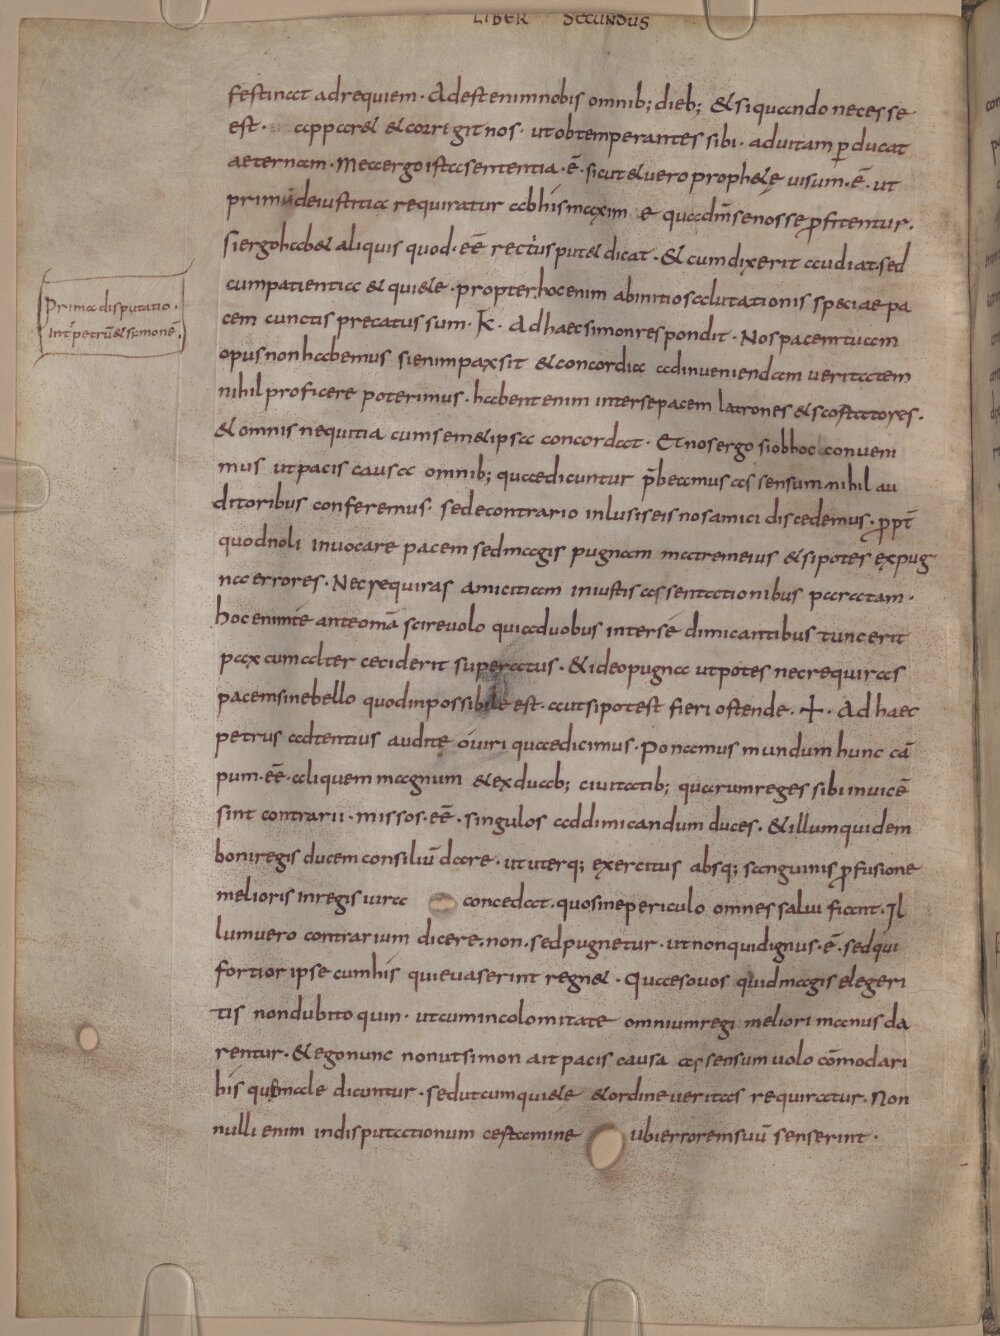 LIBER SECUNDUS
festinat ad requiem · Adest enim nobis omnib; dieb; & si quando necesse
est · apparet & corrigit nos · ut obtemperantes sibi · ad uitam p̄ducat
aeternam · Mea ergo ista sententia · ē · sicut & uero prophetę uisum · ē · ut
primū de iustitia requiratur ab his maxime qua dm̄ se nosse p̄fitentur ·
si ergo habet aliquis quod · eē rectius putet dicat · & cum dixerit audiat sed
cum patientia & quiete · propter hoc enim ab initio salutationis speciae pa
cem cunctis precatus sum · K · Ad haec simon respondit · Nos pacem tuam
opus non habemus si enim pax sit & concordia ad inueniendam ueritatem
nihil proficere poterimus · habent enim inter se pacem latrones & scortatores ·
& omnis nequitia cum semetipsa concordat · Et nos ergo si ob hoc conueni
mus ut pacis causa omnib; quae dicuntur p̄beamus assensum nihil au
ditoribus conferemus · sed e contrario inlusis eis nos amici discedemus · p̄pt̄
quod noli inuocare pacem sed magis pugnam matrem eius & si potes expug
na errores · Nec requiras amicitiam iniustis assentationibus paratam ·
hoc enim te ante omā scire uolo quia duobus inter se dimicantibus tunc erit
pax cum alter ceciderit superatus · & ideo pugna ut potes nec requiras
pacem sine bello quod inpossibile est · aut si potest fieri ostende · + · Ad haec
petrus adtentius audite o uiri quae dicimus · Ponamus mundum hunc cā
pum · eē · aliquem magnum & ex duab; ciuitatib; quarum reges sibi inuicē
sint contrarii · missos · eē · singulos ad dimicandum duces · & illum quidem
boni regis ducem consiliū dare · ut uterq; exercitus absq; sanguinis p̄fusione
melioris in regis iura concedat · quo sine periculo omnes salui fiant · Il
lum uero contrarium dicere · non · sed pugnetur · ut non qui dignus · ē · sed qui
fortior ipse cum his qui euaserint regnet · Quaeso uos quid magis elegeri
tis non dubito quin · ut cum incolomitate omnium regi meliori manus da
rentur · & ego nunc non ut simon ait pacis causa assensum uolo cōmodari
his quę male dicuntur · sed ut cum quiete & ordine ueritas requiratur · Non
nulli enim in disputationum certamine ubi errorem suū senserint ·
Prima disputatio ·
Int̄ petrū & simonē ·